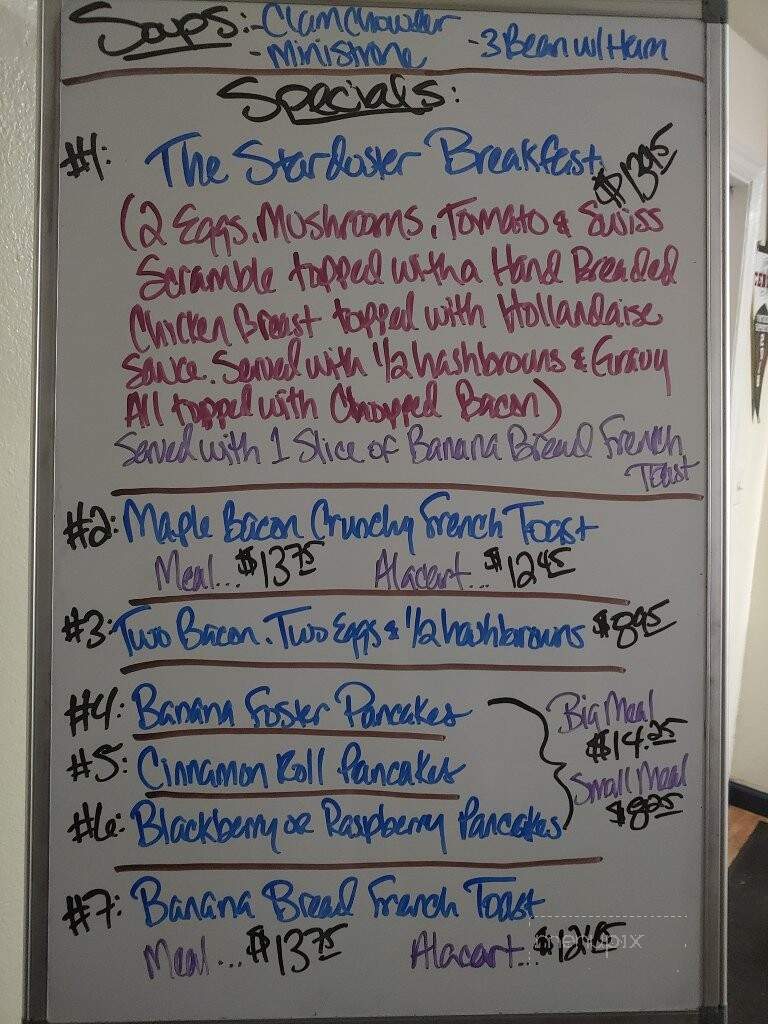 Soups: -Clam Chowder
-Ministrone -3 Bean w/ Ham
Specials:
#1: The Starduster Breakfast $13.95
(2 Eggs, Mushrooms, Tomato & Swiss
Scramble topped with a Hand Breaded
Chicken Breast topped with Hollandaise
Sauce. Served with 1/2 hashbrowns & Gravy
All topped with Chopped Bacon)
Served with 1 Slice of Banana Bread French
Toast
#2: Maple Bacon Crunchy French Toast
Meal... $13.75 Alacart... $12.45
#3: Two Bacon, Two Eggs & 1/2 hashbrowns $8.95
#4: Banana Foster Pancakes
Big Meal
$14.25
#5: Cinnamon Roll Pancakes
Small Meal
$8.95
#6: Blackberry or Raspberry Pancakes
#7: Banana Bread French Toast
Meal... $13.75 Alacart... $12.45
menupix